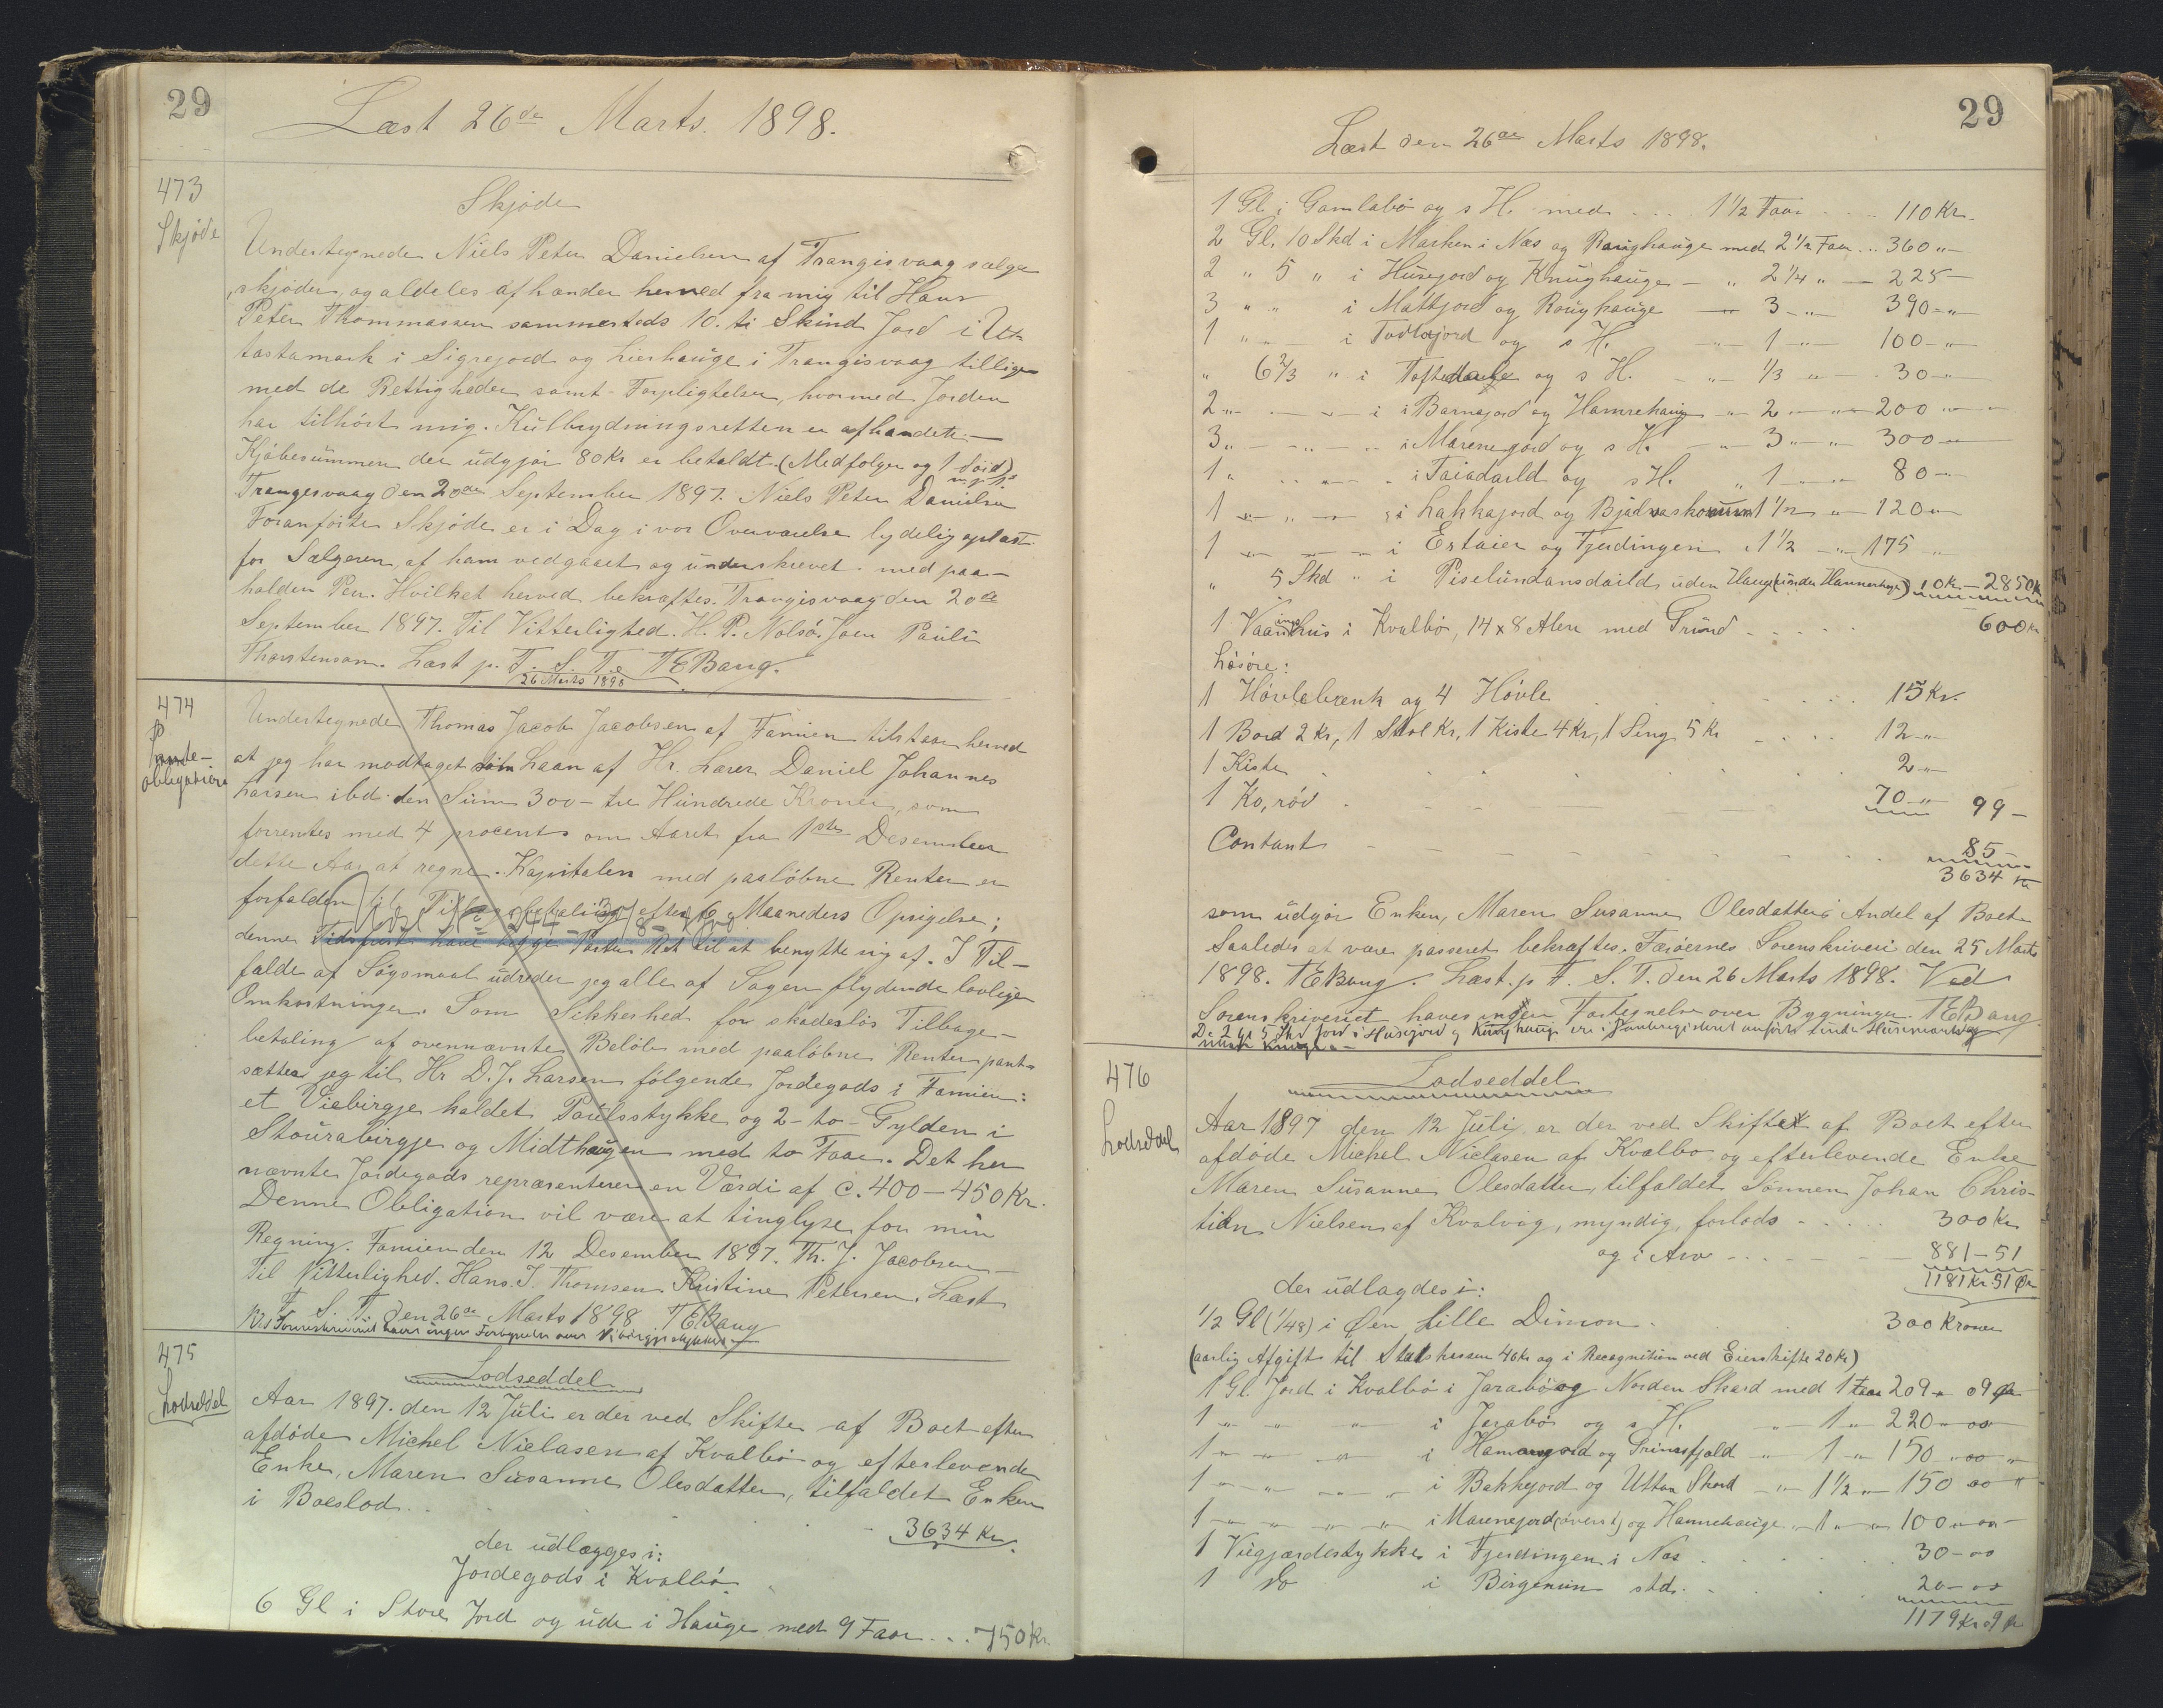 29
Læst 26de Marts. 1898.
473
Skjøde
Skjøde
Undertegnede Niels Peter Danielsen af Trangisvaag sælger
skjøder og aldeles afhænder herved fra mig til Hans
Peter Thommassen sammesteds 10. ti Skind Jord i Ut-
tastamark i Sigrejord og Lierhauge i Trangisvaag tilligem
med de Rettigheder samt Forpligtelser, hvormed Jorden
har tilhört mig. Kulbrydningsretten er afhændet. —
Kjøbesummen der udgjør 80 Kr er betaldt. (Medfølger og 1 Söid)
Trangesvaag den 20de September 1897. Niels Peter Danielsen
m. p. P.
Foranførte Skjöde er i Dag i vor Overværelse lydelig oplæst
for Sælgeren, af ham vedgaaet og underskrevet med paa-
holden Pen. Hvilket herved bekræftes. Trangisvaag den 20de
September 1897. Til Vitterlighed. H. P. Nolsö. Joen Pauli
Thorstensen. Læst p. F. S. T. TEBang.
26 Marts 1898
474
Pante-
obligation
Undertegnede Thomas Jacob Jacobsen af Famien tilstaar herved
at jeg har modtaget som Laan af Hr. Lærer Daniel Johannes
Larsen ibd. den Sum 300 - tre Hundrede Kroner, som
forrentes med 4 procents om Aaret fra 1ste Desember
dette Aar at regne. Kapitalen med paalöbne Renter er
forfalden til Tilbagebetaling efter 6 Maaneders Opsigelse;
denne Tidsfrist have begge Parter Ret til at benytte sig af. I Til-
fælde af Søgsmaal udreder jeg alle af Sagen flydende lovlige
Omkostninger. Som Sikkerhed for skadeslös Tilbage-
betaling af ovennævnte Beløb med paalöbne Renter pant-
sætter jeg til Hr D. J. Larsen følgende Jordegods i Famien:
et Viebirgje kaldet Paulsstykke og 2 - to - Gylden i
Stourabirgje og Midthaugen med to Faar. Det her
nævnte Jordegods repræsenterer en Værdi af c. 400 - 450 Kr.
Denne Obligation vil være at tinglyse for min
Regning. Famien den 12 Desember 1897. Th. J. Jacobsen —
Til Vitterlighed. Hans. J. Thomsen Kristine Petersen. Læst
p. F. S. T. den 26de Marts 1898 TEBang
Ved Sorenskriveriet haves ingen Fortegnelse over Vibirgjestykker
475
Lodseddel
Lodseddel
Aar 1897. den 12 Juli er der ved Skifte af Boet efter
afdöde Michel Nielasen af Kvalbö og efterlevende
Enke, Maren Susanne Olesdatter, tilfaldet Enken
i Boeslod . . 3634 Kr.
der udlægges i:
Jordegods i Kvalbö.
6 Gl i Store Jord og ude i Hauge med 9 Faar . . . 750 Kr.
29
Læst den 26de Marts 1898.
1 Gl. i Gamlabö og s H. med . . . 1 1/2 Faar . . . . 110 Kr.
2 Gl. 10 Skd i Marken i Næs og Raughauge med 2 1/2 Faar . . 360 "
2 " 5 " i Husejord og Knughauge — " 2 1/4 " — 225 —
3 " " i Mattjord og Roughauge — 3 — " 390 — "
1 " — i Todlajord og s H. — " — 1 — " — 100 — "
" 6 2/3 " i Toftedauge og s H. — " — 1/3 " — 30 — "
2 " — " — i Barnajord og Hamrehauge — " — 2 — " — 200 "
3 " — " — i Marenegjord og s H. — " — 3 — " — 300 —
1 " — " — i Taiadaild og s H. " 1 — " — 80 —
1 " — " — i Lakkajord og 1 1/2 " — 120 "
1 — " — i Ertaier og Fjerdingen " 1 1/2 — " — 175 "
" 5 Skd " i Piselundansdaild uden Hauge (under Hannerhge) 10 Kr — 2850 Kr
1 Vaaningshus i Kvalbö, 14 x 8 Alen med Grund . . . . . 600 Kr
Lösöre:
1 Hövlebænk og 4 Hövle . . . . . 15 Kr.
1 Bord 2 Kr, 1 Stol Kr, 1 Kiste 4 Kr, 1 Seng 5 Kr . . . . 12 — "
1 Kiste . . . . . 2 — "
1 Ko, röd . . . . 70 — " 99 —
Contant . . . . 85 —
3634 Kr
som udgör Enken, Maren Susanne Olesdatters Andel af Boet.
Saaledes at være passeret bekræftes. Færöernes Sorenskriveri den 25 Marts
1898. TEBang. Læst. p F. S. T. den 26 Marts 1898. Ved
Sorenskriveriet haves ingen Fortegnelse over Bygninger. TEBang.
De 2 Gl 5 Skd Jord i Husejord og Knughauge ere i Panteregisteret anført under
476
Lodseddel
Lodseddel
Aar 1897 den 12 Juli er der ved Skiftet af Boet efter
afdöde Michel Nielasen af Kvalbö og efterlevende Enke
Maren Susanne Olesdatter, tilfaldet Sönnen Johan Chris-
tian Nielsen af Kvalvig, myndig, forlods . . . . 300 Kr
og i Arv . . . . 881 — 51
der udlagdes i: 1181 Kr. 51 Øre
1/2 Gl (1/48) i Øen Lille Dimon . 300 Kroner
(aarlig Afgift til Statskassen 40 Kr og i Recognition ved Eierskifte 20 Kr)
1 Gl. Jord i Kvalbö i Jarabö og Norden Skard med 1 Faar 209 " 09 Øre
1 " " " i Jarabö og s H. " 1 " 220 " 00
1 " " " i Hamarsjord og Grimsfjald " 1 " 150 " 00 "
1 " " " i Bakkejord og Uttan Skard — " 1 1/2 " 150 00 "
1 " " " i Marenejord (överst) og Hannehauge " 1 " " 100 " 00 —
1 Viegjærdestykke i Fjerdingen i Næs . . . . 30 — 00
1 do i Birgenum std. . . . 20 — 00
1179 Kr 09 Øre